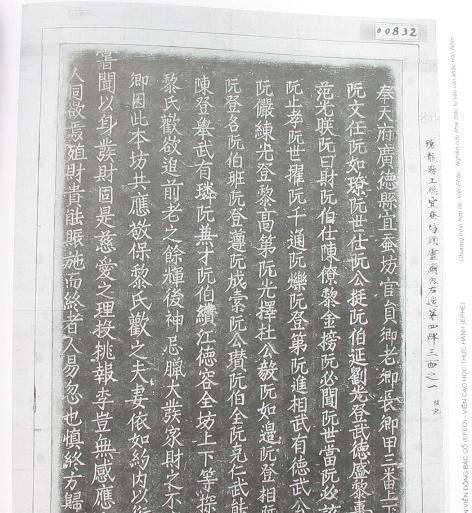 00832
奉天府廣德縣宜蚕坊官員鄉老鄉長鄉甲三番上下
阮文任阮如璙阮世仕阮公挺阮伯延劉光登武德盛黎
范光朕阮曰財阮伯仕陳僚黎金榜阮必聞阮世當阮必
阮止孝阮世擢阮千通阮爍阮登第阮進相武有德武公
阮儼練光登黎高第阮光擇杜公毅阮如邉阮登相阮
阮登名阮伯班阮登阮成阮公瓚阮伯全阮克仁武能
陳登舉武有璘阮兼才阮伯鑽江德容全坊上下等
黎氏歡欲追前老之餘輝後神忌臘大發家財之不
鄉因此本坊共應敬保黎氏歡之夫妻依如約內以
嘗聞以身發財固是慈愛之理投挑報李豈無感應
人同欲焉殖財貴能賑施而終者人易忽也慎終方歸
龍縣上宜蚕坊靈廟右邊第四碑三面之一
Chương trình hợp tác Việt-Pháp: Nghiên cứu khai thác tư liệu văn khắc Hán Nôm
VIỄN ĐÔNG BÁC CỔ (EFEO) - VIỆN CAO HỌC THỰC HÀNH (EPHE)